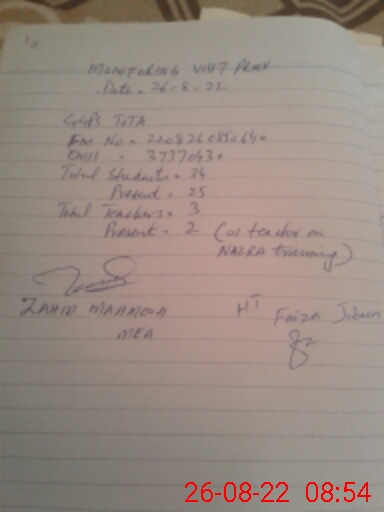 MONITORING VISIT PROOF
Date = 26-8-22
GGPS TOTA
Em No = 220826085640
EMIS = 37370430
Total Students = 34
Present = 25
Total Teachers = 3
Present = 2 (01 teacher on
training)
ZAHID MAHMOOD
MEA
HT Faiza Jabeen
26-08-22 08:54